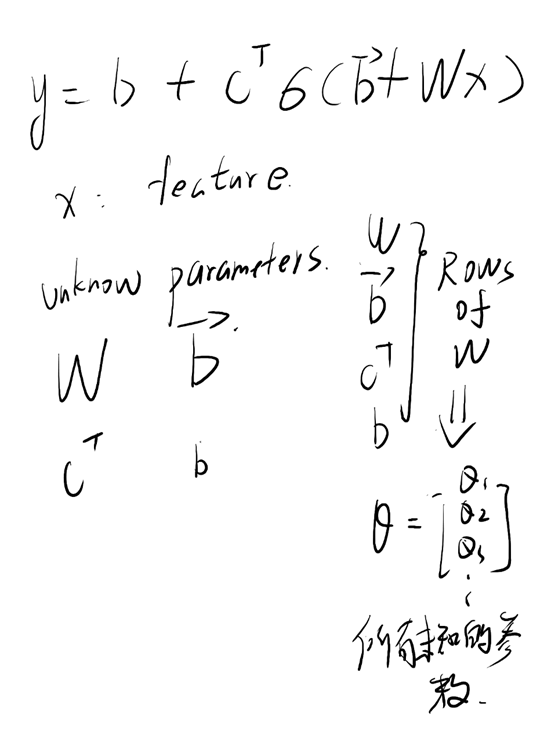 y = b + cᵀ б(b⃗ + Wx)
x : feature.
unknow parameters.
W b⃗.
cᵀ b
W
b⃗
cᵀ
b
Rows
of
W
⇓
θ = [θ₁
θ₂
θ₃
⋮]
所有未知的参
数.